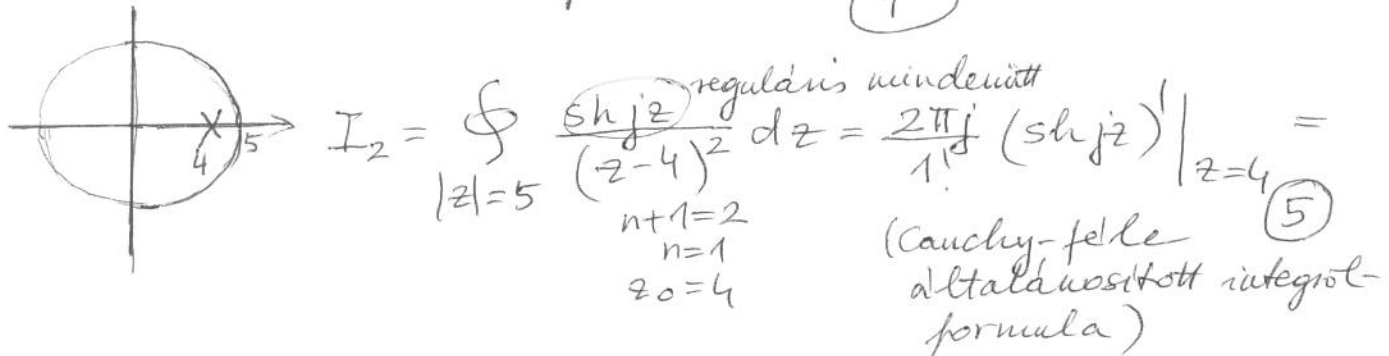 1
I₂ = ∮_{|z|=5} \frac{sh jz}{(z-4)^2} dz = \frac{2πj}{1!} (sh jz)'|_{z=4} =
reguláris mindenütt
4 5
n+1=2
n=1
z₀=4
5
(Cauchy-féle
általánosított integrál-
formula)